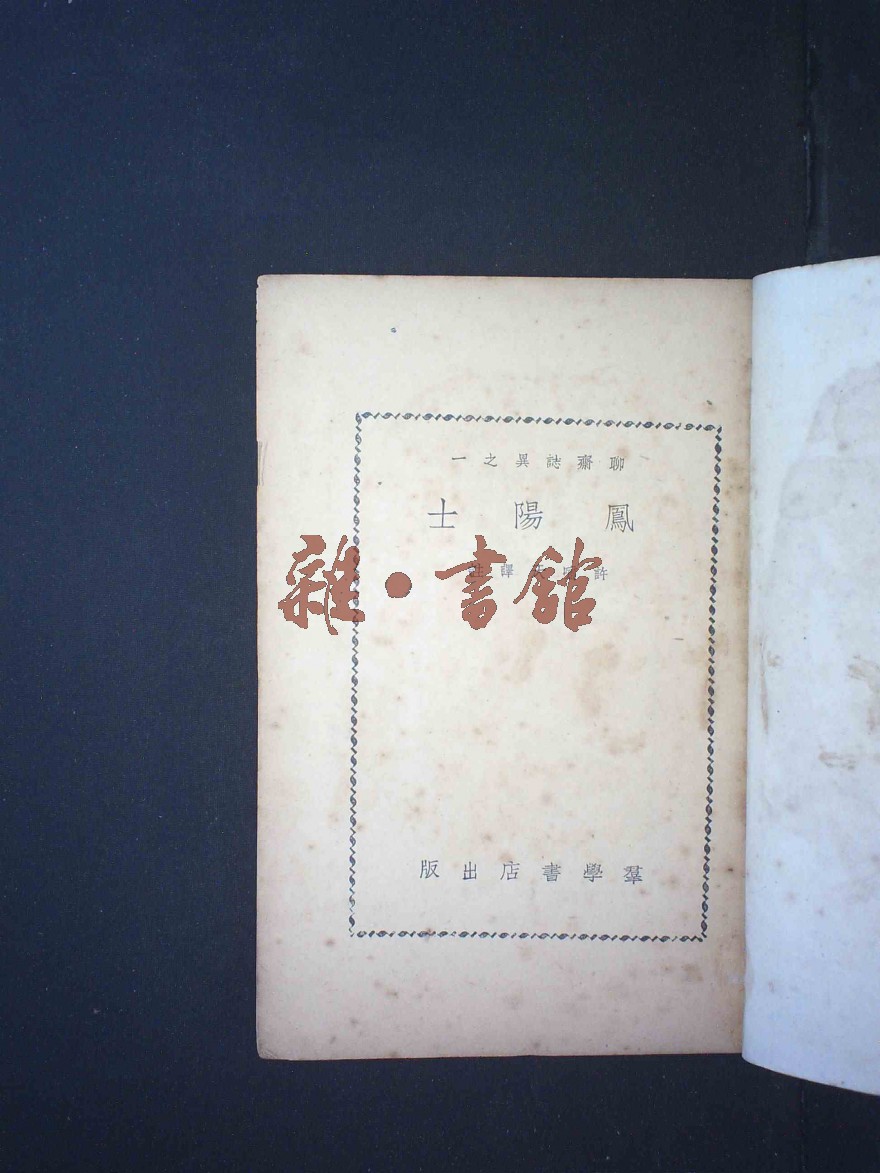 聊齋誌異之一
鳳陽士
許 譯註
羣學書店出版
雜·書館